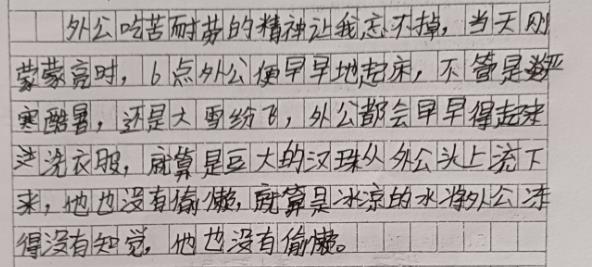 外公吃苦耐劳的精神让我忘不掉，当天刚
蒙蒙亮时，6点外公便早早地起床，不管是严
寒酷暑，还是大雪纷飞，外公都会早早得起来
洗衣服，就算是豆大的汉珠从外公头上流下
来，他也没有偷懒，就算是冰凉的水将外公冻
得没有知觉，他也没有偷懒。